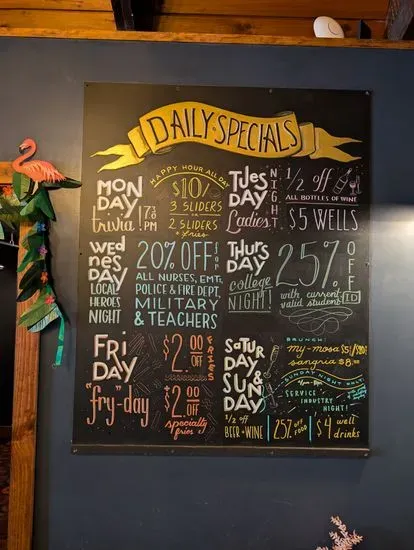 DAILY·SPECIALS
MON
DAY
trivia!
7:30
PM
HAPPY HOUR ALL DAY
$10/
3 SLIDERS
OR
2 SLIDERS
+ fries
TUES
DAY
Ladies
NIGHT
1/2 off
ALL BOTTLES OF WINE
$5 WELLS
Wed
nes
DAY
LOCAL
HEROES
NIGHT
20% OFF FOR
ALL NURSES, EMT,
POLICE & FIRE DEPT,
MILITARY
& TEACHERS
THURS
DAY
college
NIGHT!
25% OFF
with current
valid student ID
FRI
DAY
"fry-day"
$2.00 OFF
FRIES
$2.00 OFF
specialty
fries
SATUR
DAY
&
SUN
DAY
1/2 off
BEER + WINE
BRUNCH!
my-mosa $5/
sangria $8
SUNDAY NIGHT ONLY
SERVICE
INDUSTRY
NIGHT!
25% OFF FOOD
$4 well
drinks